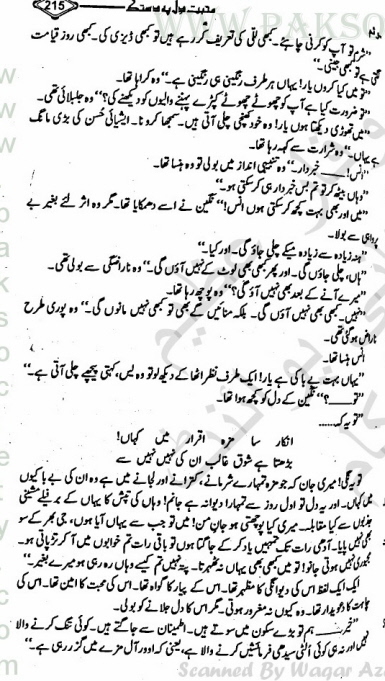 WWW.PAKSO
محبت دل پہ دستک 215
"شرم تو آپ کو کرنی چاہئے۔ کبھی نقی کی تعریف کر رہے ہیں تو کبھی ڈیزی کی۔ کبھی روز قیامت
لگتی ہے تو کبھی جینی۔"
"تو میں کیا کروں یار! یہاں ہر طرف رنگینی ہی رنگینی ہے۔" وہ کراہا تھا۔
"تو ضرورت کیا ہے آپ کو چھوٹے چھوٹے کپڑے پہننے والیوں کو دیکھنے کی؟" وہ جلبلائی تھی۔
"میں تھوڑی دیکھتا ہوں یار! وہ خود کھنچی چلی آتی ہیں۔ سمجھا کرو نا۔ ایشیائی حسن کی بڑی مانگ
ہے یہاں۔" وہ شرارت سے کہہ رہا تھا۔
"انس!___ خبردار۔" وہ تنبیہی انداز میں بولی تو وہ ہنسا تھا۔
"وہاں بیٹھ کر تو تم بس خبردار ہی کر سکتی ہو۔"
"میں اور بھی بہت کچھ کر سکتی ہوں انس!" نگین نے اسے دھمکایا تھا۔ مگر وہ اثر لئے بغیر بے
پرواہی سے بولا۔
"ہنہ زیادہ سے زیادہ میکے چلی جاؤ گی۔ اور کیا۔"
"ہاں، چلی جاؤں گی۔ اور پھر کبھی بھی لوٹ کے نہیں آؤں گی۔" وہ ناراضگی سے بولی تھی۔
"میرے آنے کے بعد بھی نہیں آؤ گی؟" وہ پوچھ رہا تھا۔
"نہیں۔ کبھی بھی نہیں آؤں گی۔ بلکہ منائیں گے بھی تو کبھی نہیں مانوں گی۔" وہ پوری طرح
ناراض ہو گئی تھی۔
انس ہنسا تھا۔
"یہاں بہت بے باکی ہے یار! ایک طرف نظر اٹھا کے دیکھ لو تو وہ بس، کہتی پیچھے چلی آتی ہے۔"
"تو___؟" نگین کے دل کو کچھ ہوا تھا۔
"تو یہ کہ___
انکار سا مزہ اقرار میں کہاں!
بڑھتا ہے شوق غالب ان کی نہیں نہیں سے
تو نگی! میری جان کہ جو مزہ تمہارے شرمانے، کترانے اور لجانے میں ہے وہ ان کی بے باکیوں
میں کہاں۔ اور یہ دل تو اول روز سے تمہارا دیوانہ ہے جانم! وہاں کی تپش کا یہاں کے برفیلے مشینی
جذبوں سے کیا مقابلہ۔ میری کیا پوچھتی ہو جانِ من! میں تو جب سے یہاں آیا ہوں، جی بھر کے سو
بھی نہیں پایا۔ آدھی رات تک تمہیں یاد کر کے جاگتا ہوں تو باقی رات تم خوابوں میں آ کر تڑپاتی ہو۔
مجبوری نہیں ہوتی جانو! تو میں کبھی بھی یہاں نہ ٹھہرتا۔ پتہ نہیں تم کیسے وہاں رہ رہی ہو میرے بغیر۔"
ایک ایک لفظ اس کی دیوانگی کا مظہر تھا۔ اس کے پیار کا گواہ تھا۔ اس کی محبت کا امین تھا۔ اس کی
چاہت کا دعویدار تھا۔ وہ کیوں نہ مغرور ہوتی۔ مگر اس کا دل جلانے کو بولی۔
"خیر___ ہم تو بڑے سکون میں سوتے ہیں۔ اطمینان سے جاگتے ہیں۔ کوئی تنگ کرنے والا
نہیں اور نہ ہی کوئی الٹی سیدھی فرمائشیں کرنے والا ہے، یعنی کہ اوور آل مزے میں گزر رہی ہے۔"
Scanned By Waqar Az